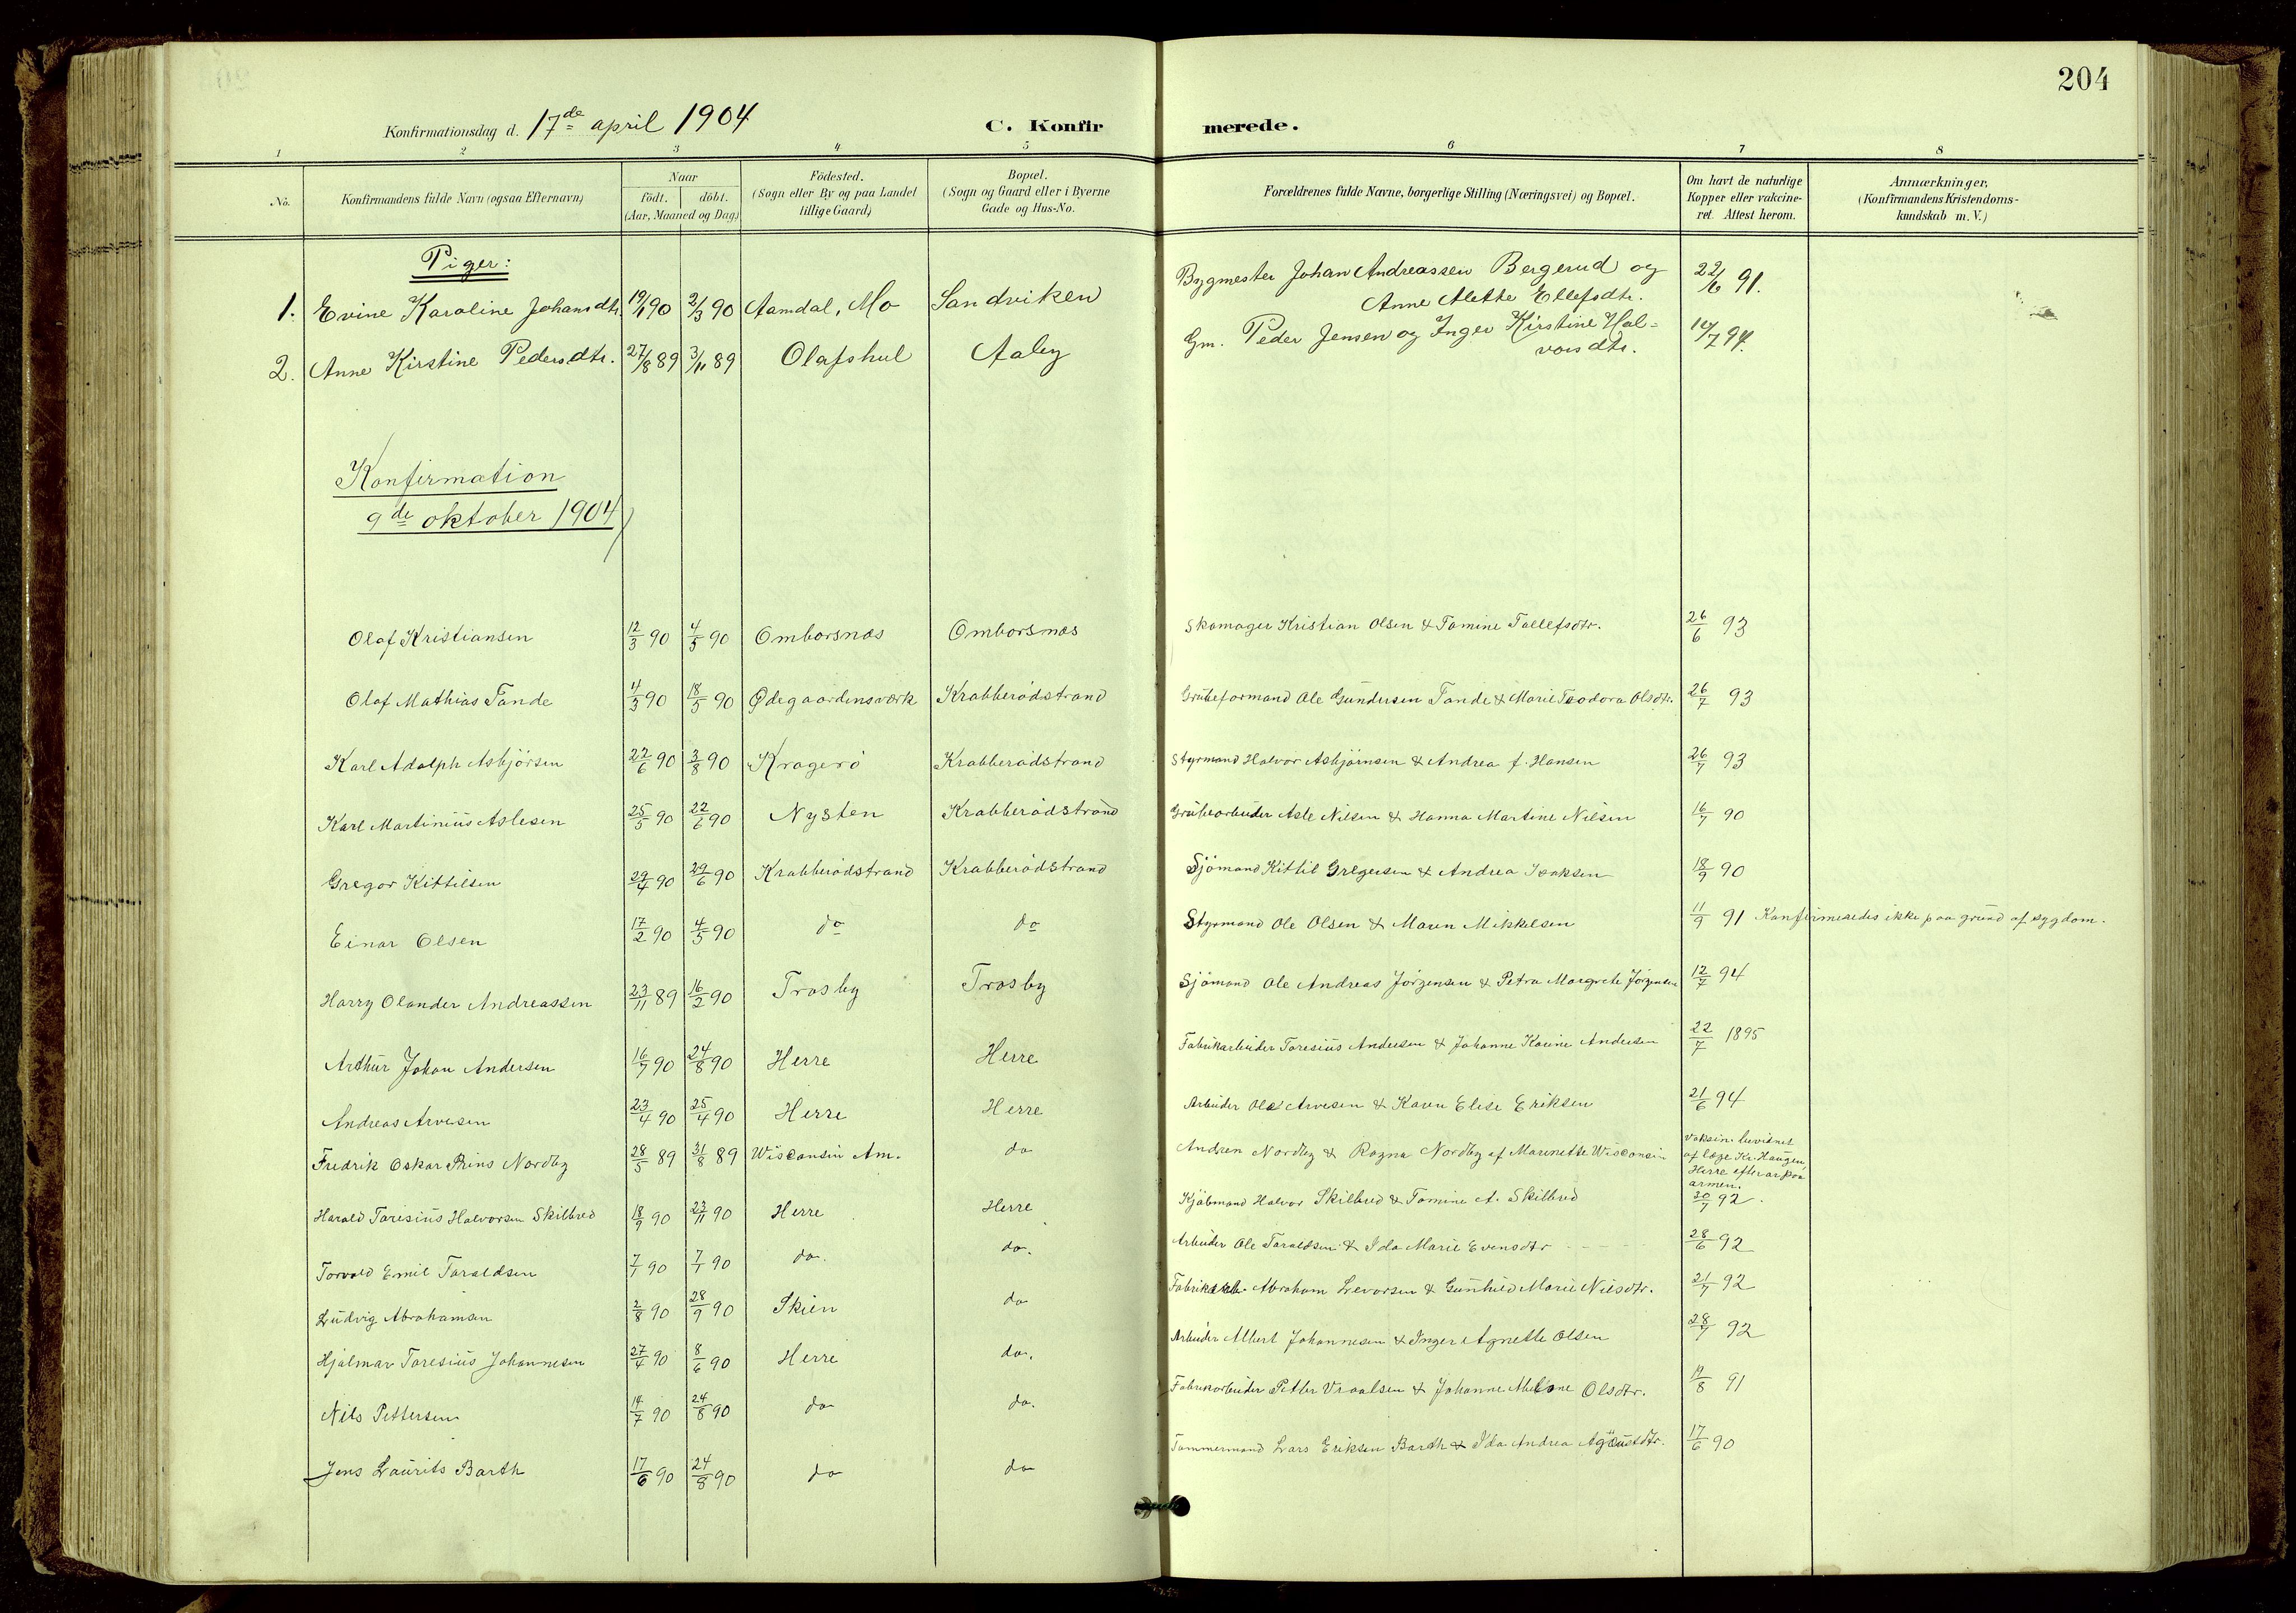 204
Konfirmationsdag d. 17de april 1904 C. Konfirmerede.
1 2 3 4 5 6 7 8
No. Konfirmandens fulde Navn (ogsaa Efternavn) Naar födt. döbt. (Aar, Maaned og Dag) Födested. (Sogn eller By og paa Landet tillige Gaard) Bopæl. (Sogn og Gaard eller i Byerne Gade og Hus-No. Forældrenes fulde Navne, borgerlige Stilling (Næringsvei) og Bopæl. Om havt de naturlige Kopper eller vakcineret. Attest herom. Anmærkninger, (Konfirmandens Kristendomskundskab m. V.)
Piger:
1. Evine Karoline Johansdtr. 19/1 90 2/3 90 Aamdal, Mo Sandviken Bygmester Johan Andreassen Bergerud og 22/6 91.
Anne Alette Ellefsdtr.
2. Anne Kirstine Pedersdtr. 27/8 89 3/11 89 Olafshul Aaby Gm. Peder Jensen og Inger Kirstine Hal- 14/7 94.
vorsdtr.
Konfirmation
9de oktober 1904
Olaf Kristiansen 12/3 90 4/5 90 Omborsnæs Omborsnæs Skomager Kristian Olsen & Tomine Tollefsdtr. 26/6 93
Olaf Mathias Tande 4/3 90 18/5 90 Ødegaardensværk Krabberödstrand Grubeformand Ole Gundersen Tande & Marie Teodora Olsdtr. 26/7 93
Karl Adolph Asbjörsen 22/6 90 3/8 90 Kragerö Krabberödstrand Styrmand Halvor Asbjörnsen & Andrea f. Hansen 26/7 93
Karl Martinius Aslesen 25/5 90 22/6 90 Nysten Krabberödstrand Grubearbeider Asle Nilsen & Hanna Martine Nilsen 16/7 90
Gregor Kittilsen 29/4 90 29/6 90 Krabberödstrand Krabberödstrand Sjömand Kittil Gregersen & Andrea Isaksen 18/9 90
Einar Olsen 17/2 90 4/5 90 do do Styrmand Ole Olsen & Maren Mikkelsen 11/9 91 Konfirmeredes ikke paa grund af sygdom.
Harry Olander Andreassen 23/11 89 16/2 90 Trosby Trosby Sjömand Ole Andreas Jörgensen & Petra Margrete Jörgensen 12/7 94
Arthur Johan Andersen 16/7 90 24/8 90 Herre Herre Fabrikarbeider Taresius Andersen & Johanne Karine Andersen 22/7 1895
Andreas Arvesen 23/4 90 25/4 90 Herre Herre Arbeider Ole Arvesen & Karen Elise Eriksen 21/6 94
Fredrik Oskar Prins Nordby 28/5 89 31/8 89 Wisconsin Am. do Andren Nordby & Ragna Nordby af Marinette Wisconsin vaksin. bevidnet
af læge Kr. Haugen,
Herre efter ar paa
armen.
Harald Taresius Halvorsen Skilbred 18/9 90 23/11 90 Herre Herre Kjöbmand Halvor Skilbred & Tomine A. Skilbred 30/7 92.
Torvald Emil Taraldsen 7/1 90 7/1 90 do. do. Arbeider Ole Taraldsen & Ida Marie Evensdtr 28/6 92
Ludvig Abrahamsen 2/8 90 28/9 90 Skien do Abraham Levorsen & Gunhild Marie Nilsdtr. 21/7 92
Hjalmar Taresius Johannesen 27/4 90 8/6 90 Herre do. Arbeider Albert Johannesen & Inger Agnette Olsen 28/7 92
Nils Pettersen 14/7 90 24/8 90 do do. Fabrikarbeider Petter Vraalsen & Johanne Olsdtr. 19/8 91
Jens Laurits Barth 17/6 90 24/8 90 do do Tømmermand Lars Eriksen Barth & Ida Andrea Agustdtr. 17/6 90